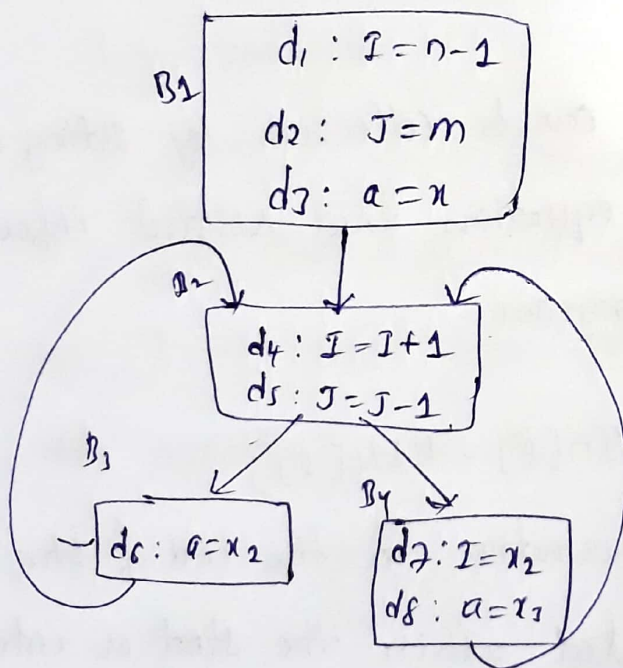 B1
d1 : I = n-1
d2 : J = m
d3 : a = x
B2
d4 : I = I+1
d5 : J = J-1
B3
d6 : a = x2
B4
d7 : I = x2
d8 : a = x3